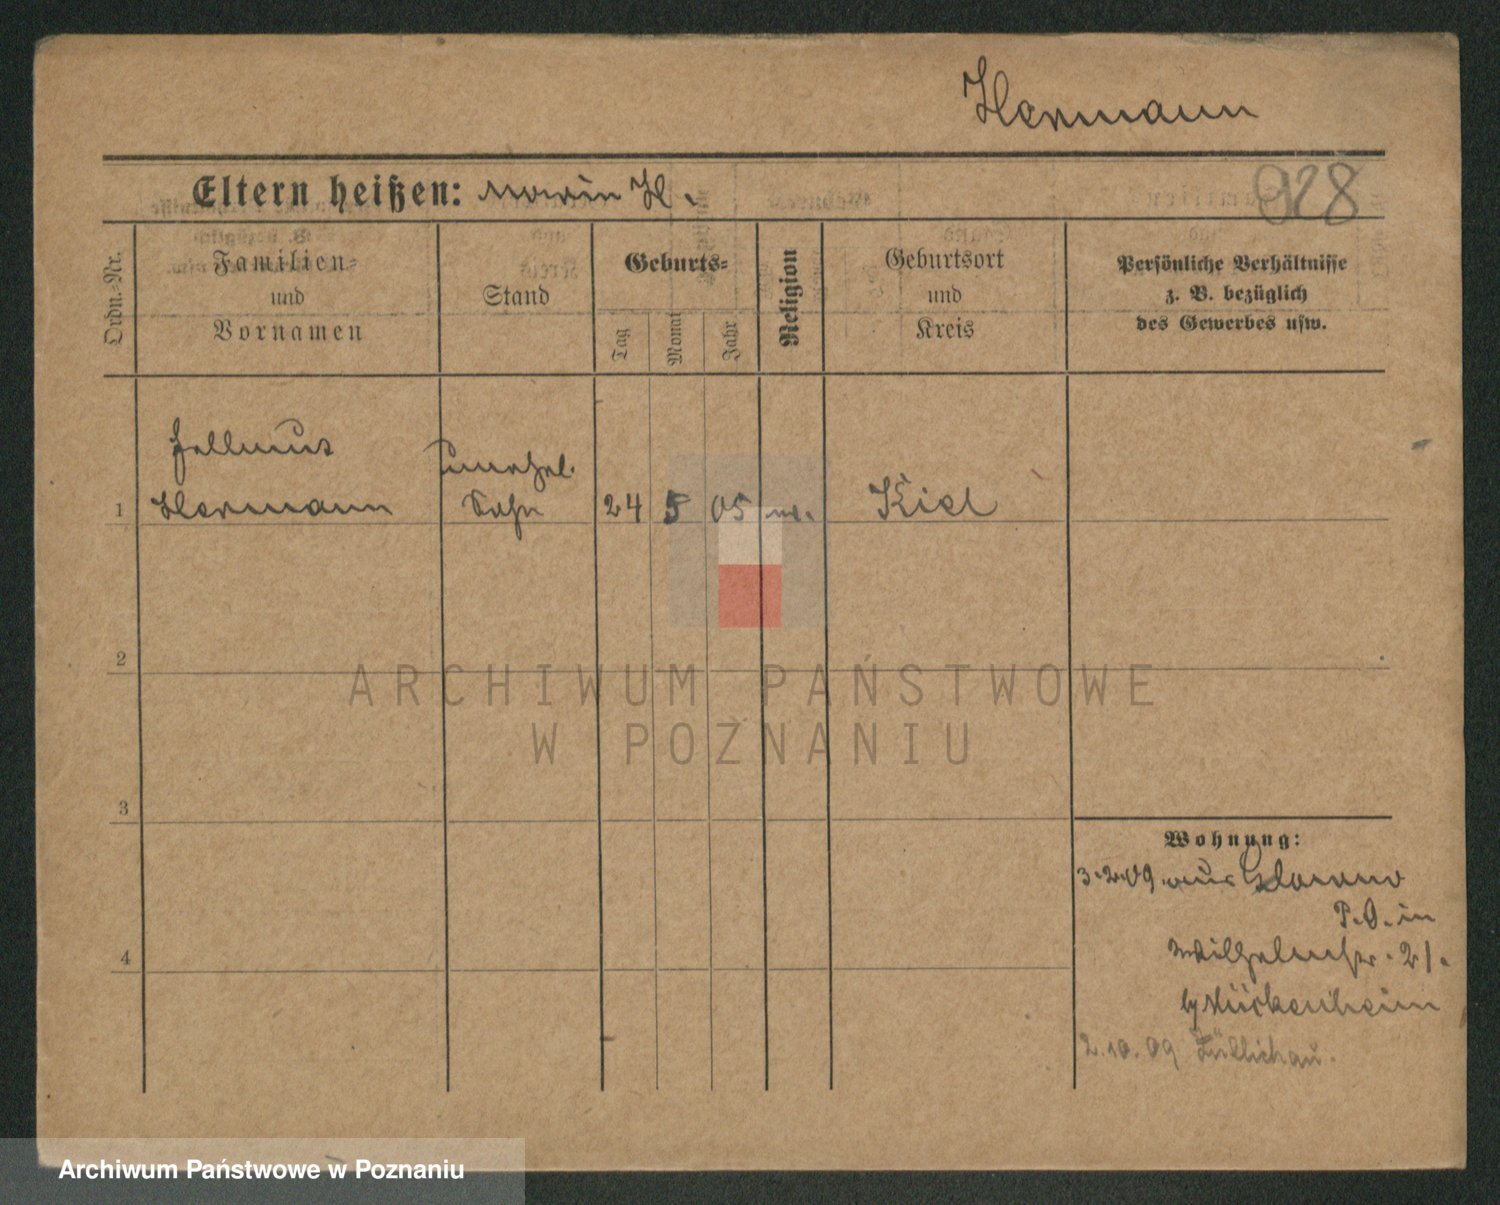 Hermann
Eltern heißen: Marie H.
928
Ordn.-Nr.
Familien-
und
Vornamen
Stand
Geburts-
Tag
Monat
Jahr
Religion
Geburtsort
und
Kreis
Persönliche Verhältnisse
z. B. bezüglich
des Gewerbes usw.
Hellmut
Hermann
unehel.
Sohn
1
24
5
05
Kiel
2
3
4
Wohnung:
3.2.09. aus
P. O. in
Wilhelmstr. 21.
b/
2.10.09 Züllichau.
ARCHIWUM PAŃSTWOWE
W POZNANIU
Archiwum Państwowe w Poznaniu